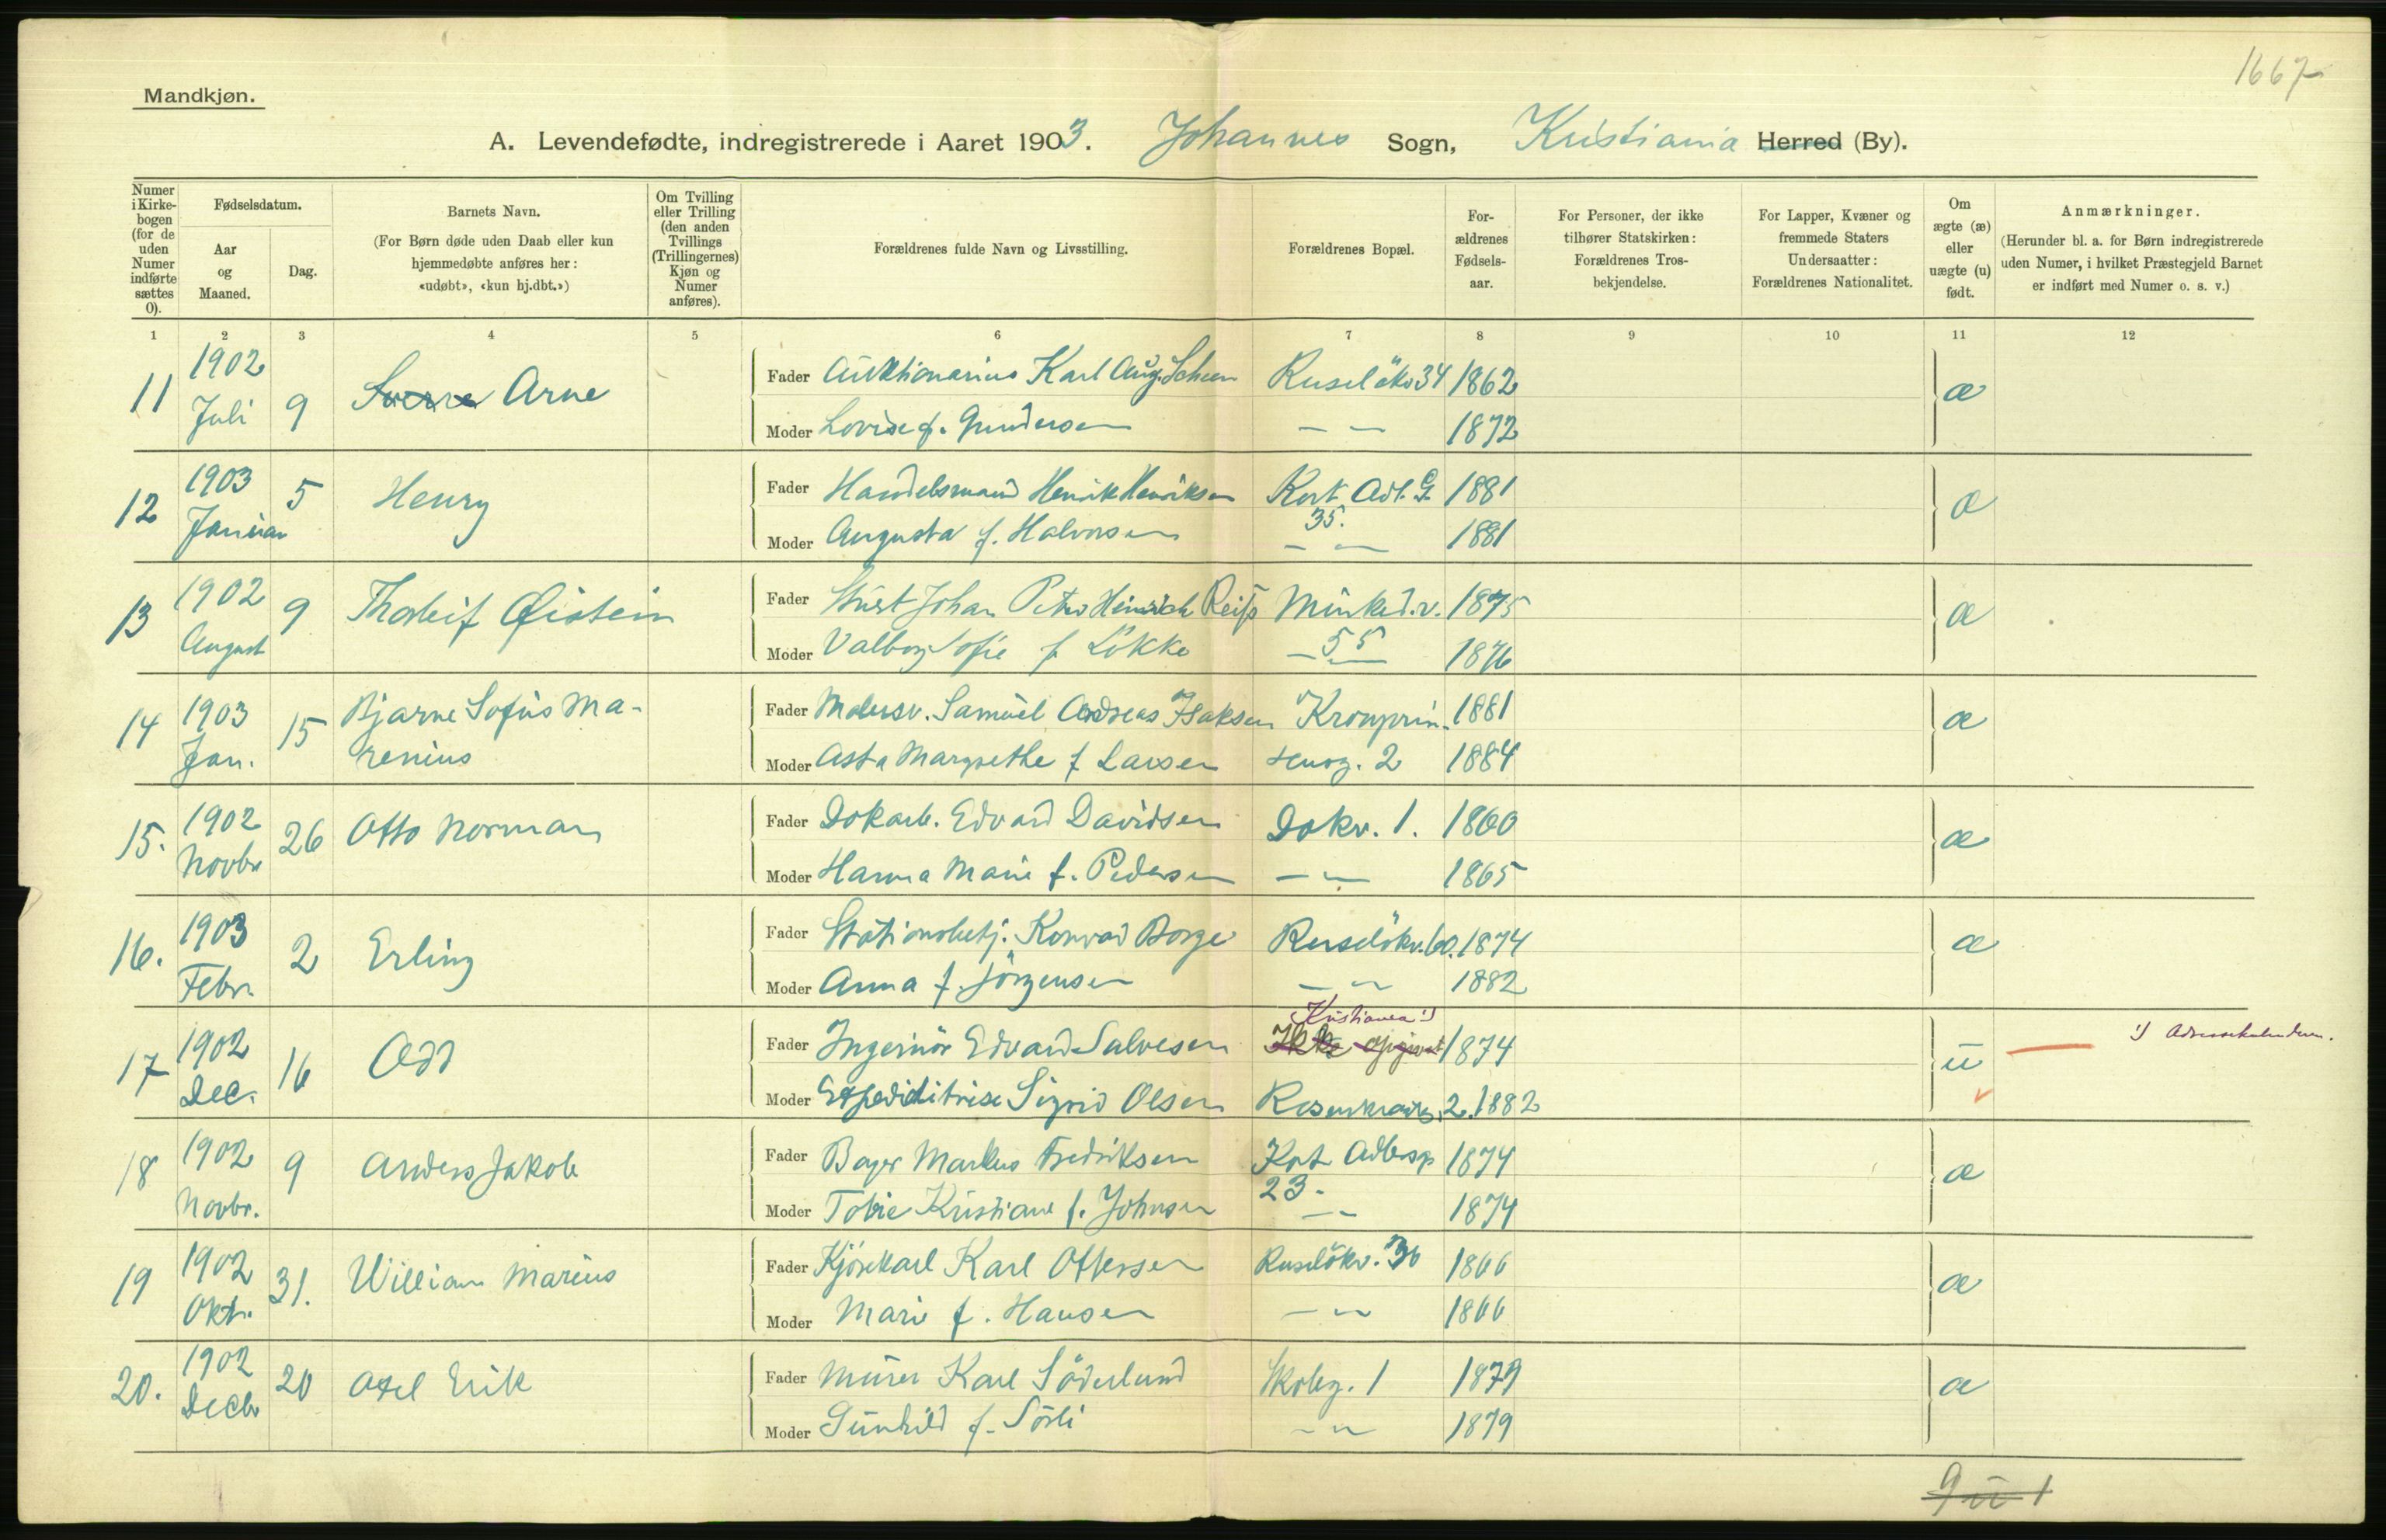 1667
Mandkjøn.
A. Levendefødte, indregistrerede i Aaret 1903. Johannes Sogn, Kristiania Herred (By).
Numer i Kirkebogen (for de uden Numer indførte sættes 0).
Fødselsdatum.
Aar og Maaned.
Dag.
Barnets Navn.
(For Børn døde uden Daab eller kun hjemmedøbte anføres her: «udøbt», «kun hj.dbt.»)
Om Tvilling eller Trilling (den anden Tvillings (Trillingernes) Kjøn og Numer anføres).
Forældrenes fulde Navn og Livsstilling.
Forældrenes Bopæl.
For-ældrenes Fødsels-aar.
For Personer, der ikke tilhører Statskirken: Forældrenes Tros-bekjendelse.
For Lapper, Kvæner og fremmede Staters Undersaatter: Forældrenes Nationalitet.
Om ægte (æ) eller uægte (u) født.
Anmærkninger.
(Herunder bl. a. for Børn indregistrerede uden Numer, i hvilket Præstegjeld Barnet er indført med Numer o. s. v.)
1 2 3 4 5 6 7 8 9 10 11 12
11 1902 Juli 9 Sverre Arne
Fader Auktionarius Karl Aug. Scheen Ruselökv 34 1862 æ
Moder Lovise f. Gundersen — — 1872
12 1903 Januar 5 Henry
Fader Handelsmand Henrik Henriksen Kort Adl. G. 35. 1881 æ
Moder Augusta f. Halvorsen — — 1881
13 1902 August 9 Thorleif Øistein
Fader Johan Petro Heinrich Reiss Munked.v. 55 1875 æ
Moder Valborg Sofie f Lökke — — 1876
14 1903 Jan. 15 Bjarne Sofus Ma-
renius
Fader Malersv. Samuel Andreas Isaksen Kronprin- 1881 æ
Moder Asta Margrethe f Larsen seng. 2 1884
15. 1902 Novbr 26 Otto Norman
Fader Dokarb. Edvard Davidsen Dokv. 1. 1860 æ
Moder Hanna Marie f. Pedersen — — 1865
16. 1903 Febr. 2 Erling
Fader Stationsbetj. Konrad Borge Ruselökv. 60. 1874 æ
Moder Anna f. Jörgensen — — 1882
17 1902 Dec. 16 Odd
Kristiania 1)
Fader Ingeniör Edvard Salvesen Ikke opgivet 1874 u 1) Adressekalenderen.
Moder Expeditrise Sigrid Olsen 2. 1882
18 1902 Novbr. 9 Anders Jakob
Fader Bager Markus Fredriksen Kort Adlersg 23. 1874 æ
Moder Tobie Kristiane f. Johnsen — — 1874
19 1902 Oktr. 31. William Marius
Fader Kjörekarl Karl Ottersen Ruselökv. 36 1866 æ
Moder Marie f. Hansen — — 1866
20. 1902 Decbr 20 Axel Erik
Fader Murer Karl Söderlund Skoleg. 1 1879 æ
Moder Gunhild f. Sörli — — 1879
9 u 1